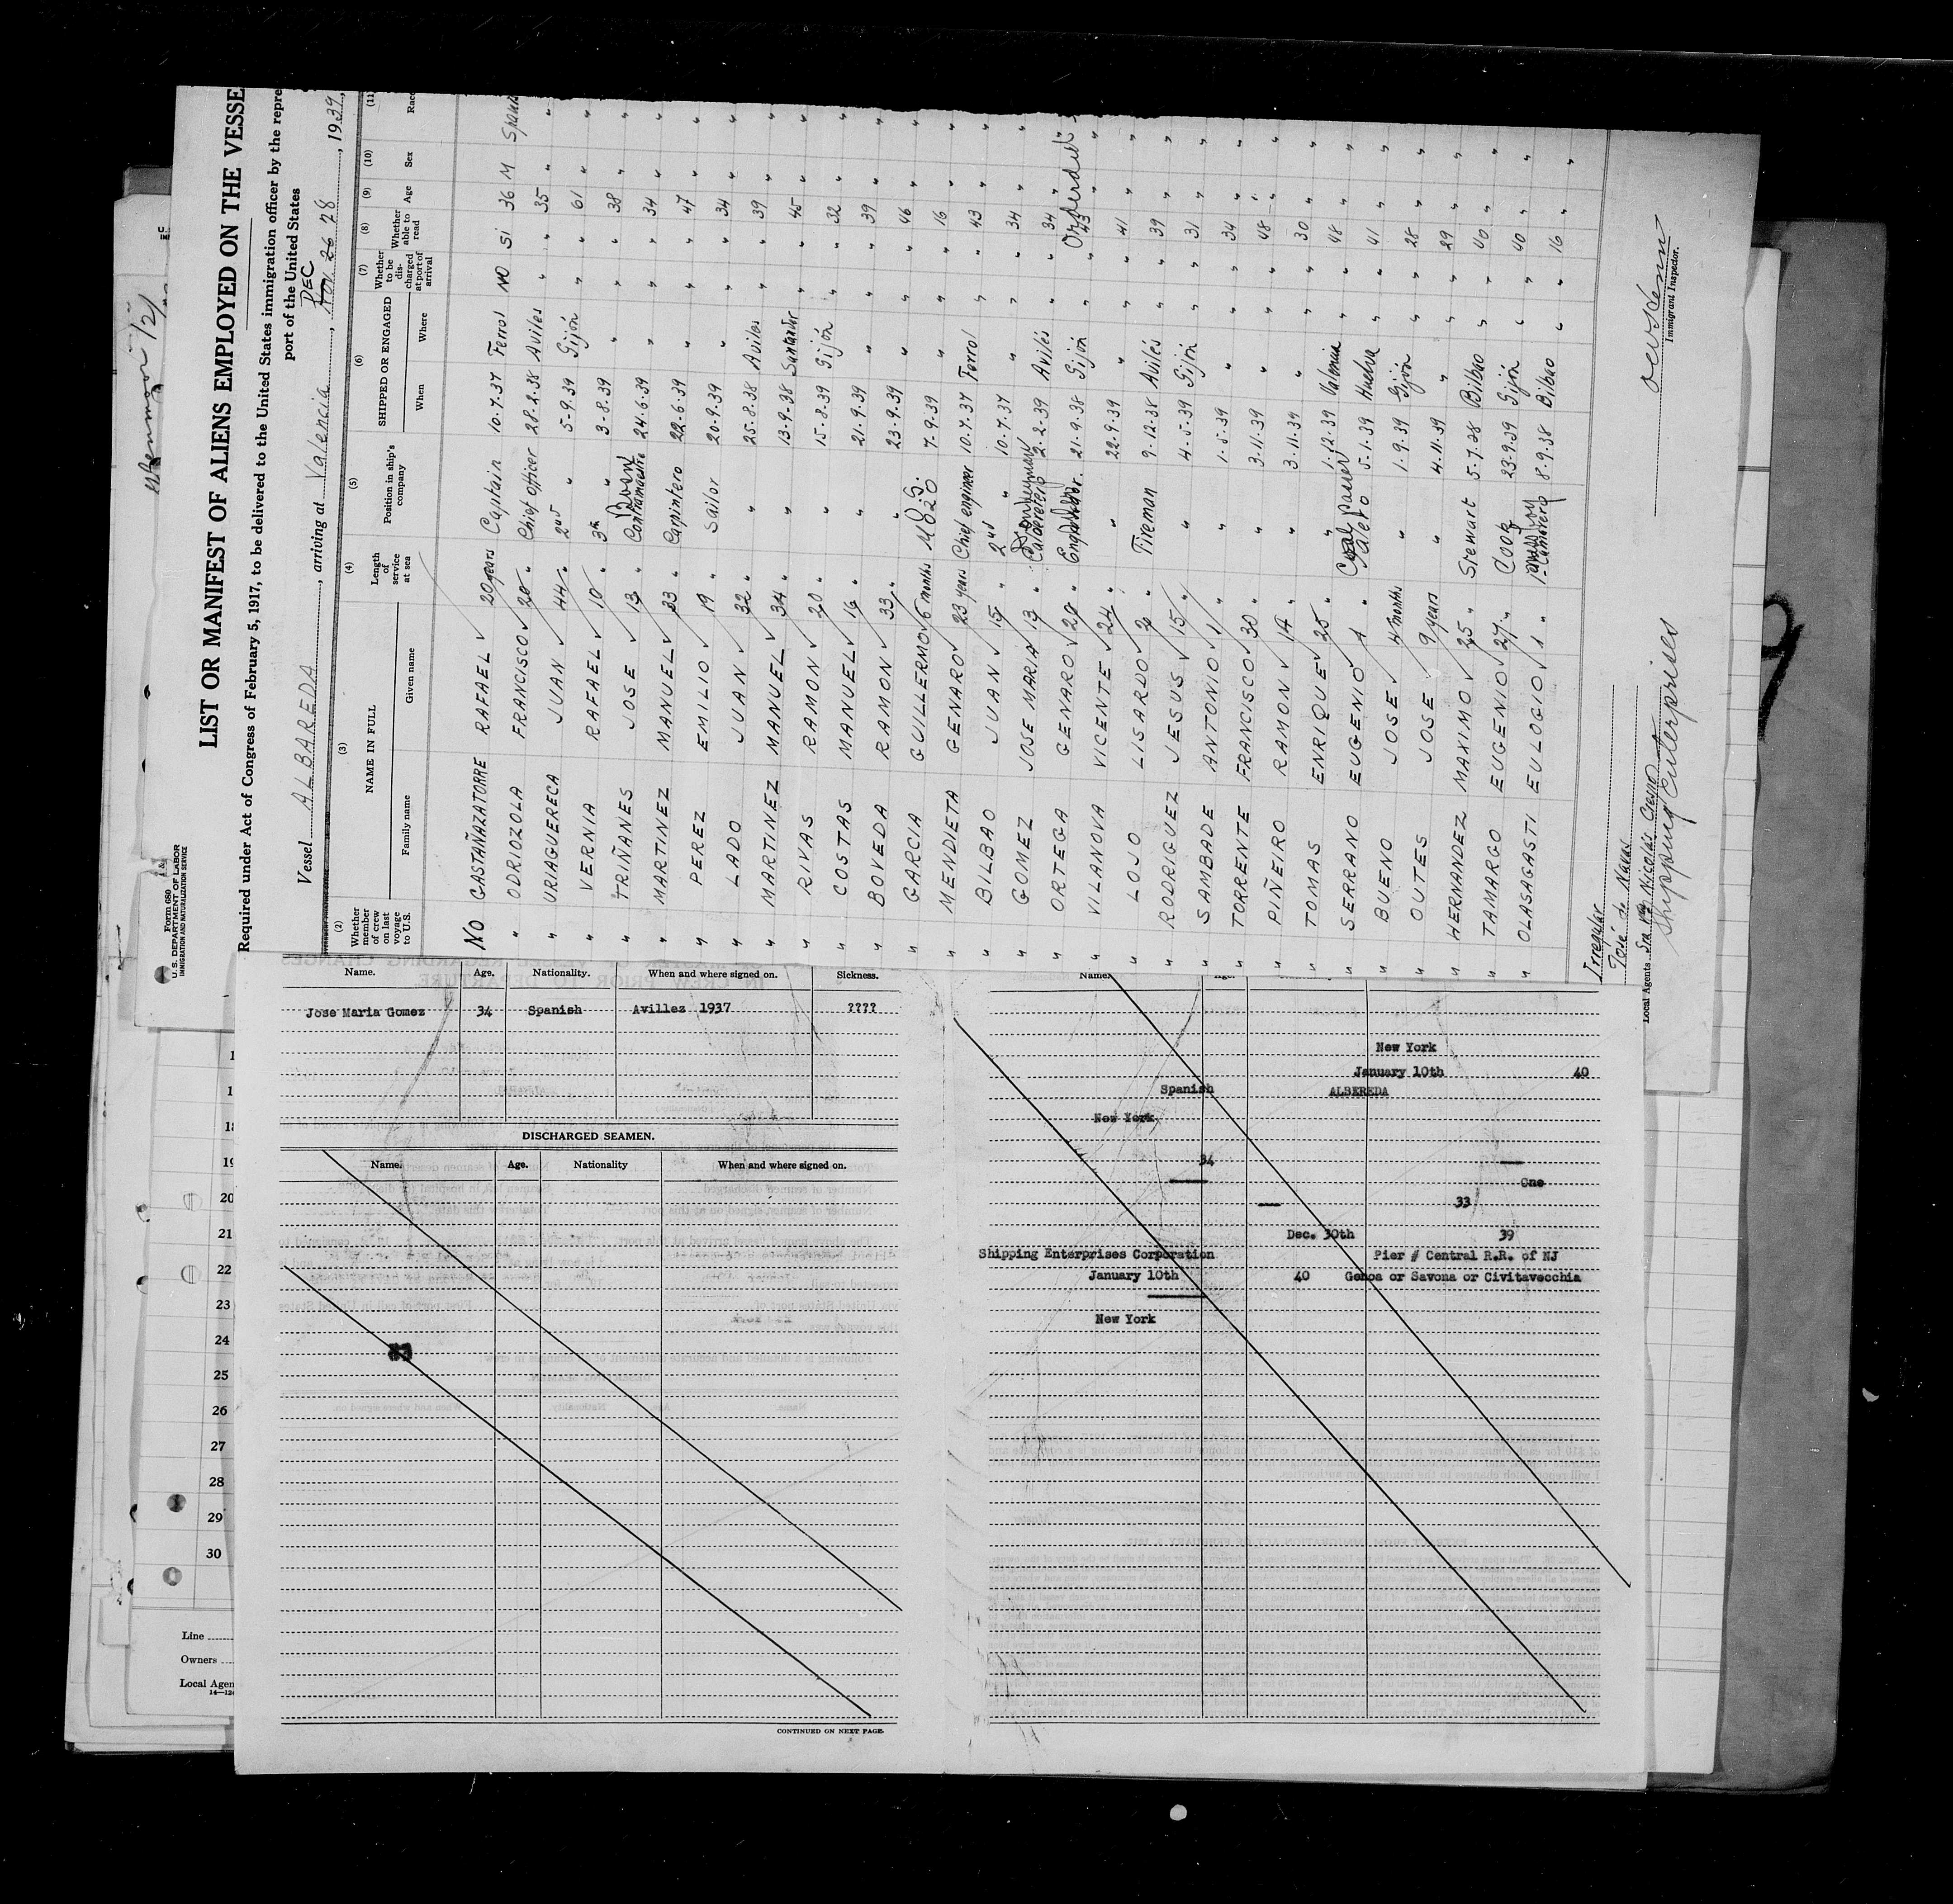 Form 680
U.S. DEPARTMENT OF LABOR
IMMIGRATION AND NATURALIZATION SERVICE
LIST OR MANIFEST OF ALIENS EMPLOYED ON THE VESSE
Required under Act of Congress of February 5, 1917, to be delivered to the United States immigration officer by the repre
port of the United States
Vessel ALBAREDA, arriving at Valencia, DEC 28, 1939,
(2) (3) (4) (5) (6) (7) (8) (9) (10) (11)
Whether member of crew on last voyage to U.S.
NAME IN FULL
Family name Given name
Length of service at sea
Position in ship's company
SHIPPED OR ENGAGED
When Where
Whether to be dis- charged at port of arrival
Whether able to read
Age Sex Race
NO GASTAÑAZATORRE RAFAEL 20 years Captain 10-7-37 Ferrol NO Si 36 M
" ODRIOZOLA FRANCISCO 20 " Chief officer 28-2-38 Aviles " " 35 " "
" URIAGUERECA JUAN 44 " 2nd " 5-9-39 Gijón " " 61 " "
" VERNIA RAFAEL 10 " 3th " 3-8-39 " " " 38 " "
" TRIÑANES JOSE 13 " Contramaestre 24-6-39 " " " 34 " "
" MARTINEZ MANUEL 33 " Carpintero 22-6-39 " " " 47 " "
" PEREZ EMILIO 19 " Sailor 20-9-39 " " " 34 " "
" LADO JUAN 32 " " 25-8-38 Aviles " " 39 " "
" MARTINEZ MANUEL 34 " " 13-9-38 Santander " " 45 " "
" RIVAS RAMON 20 " " 15-8-39 Gijón " " 32 " "
" COSTAS MANUEL 16 " " 21-9-39 " " " 39 " "
" BOVEDA RAMON 33 " " 23-9-39 " " " 46 " "
" GARCIA GUILLERMO 6 months MOZO 7-9-39 " " " 16 " "
" MENDIETA GENARO 23 years Chief engineer 10-7-37 Ferrol " " 43 " "
" BILBAO JUAN 15 " 2nd " 10-7-37 " " " 34 " "
" GOMEZ JOSE MARIA 13 " Calderero 2-2-39 Avilés " " 34 " "
" ORTEGA GENARO 20 " Engrasador 21-9-38 Gijón " "
" VILANOVA VICENTE 24 " " 22-9-39 " " " 41 " "
" LOJO LISARDO " Fireman 9-12-38 Avilés " " 39 " "
" RODRIGUEZ JESUS 15 " " 4-5-39 Gijón " " 31 " "
" SAMBADE ANTONIO 1 " " 1-5-39 " " " 34 " "
" TORRENTE FRANCISCO 30 " " 3-11-39 " " " 48 " "
" PIÑEIRO RAMON 14 " " 3-11-39 " " " 30 " "
" TOMAS ENRIQUE 25 " " 1-12-39 Valencia " " 48 " "
" SERRANO EUGENIO 1 " Coal Passer Palero 5-1-39 Huelva " " 41 " "
" BUENO JOSE 4 months " 1-9-39 Gijón " " 28 " "
" OUTES JOSE 9 years " 4-11-39 " " " 29 " "
" HERNANDEZ MAXIMO 25 " Stewart 5-7-38 Bilbao " " 40 " "
" TAMARGO EUGENIO 27 " Cook 23-9-39 Gijón " " 40 " "
" OLASAGASTI EULOGIO 1 " 8-9-38 Bilbao " " 16 " "
Ordered
Irregular
José de Navas
Local Agents
Shipping Enterprises
Immigrant Inspector.
Name. Age. Nationality. When and where signed on. Sickness.
Jose Maria Gomez 34 Spanish Avillez 1937 ????
DISCHARGED SEAMEN.
Name. Age. Nationality When and where signed on.
CONTINUED ON NEXT PAGE.
Name.
New York
January 10th 40
Spanish ALBEREDA
New York
34
One
33
Dec. 30th 39
Shipping Enterprises Corporation Pier # Central R.R. of NJ
January 10th 40 Genoa or Savona or Civitavecchia
New York
19
20
21
22
23
24
25
26
27
28
29
30
Line
Owners
Local Agen